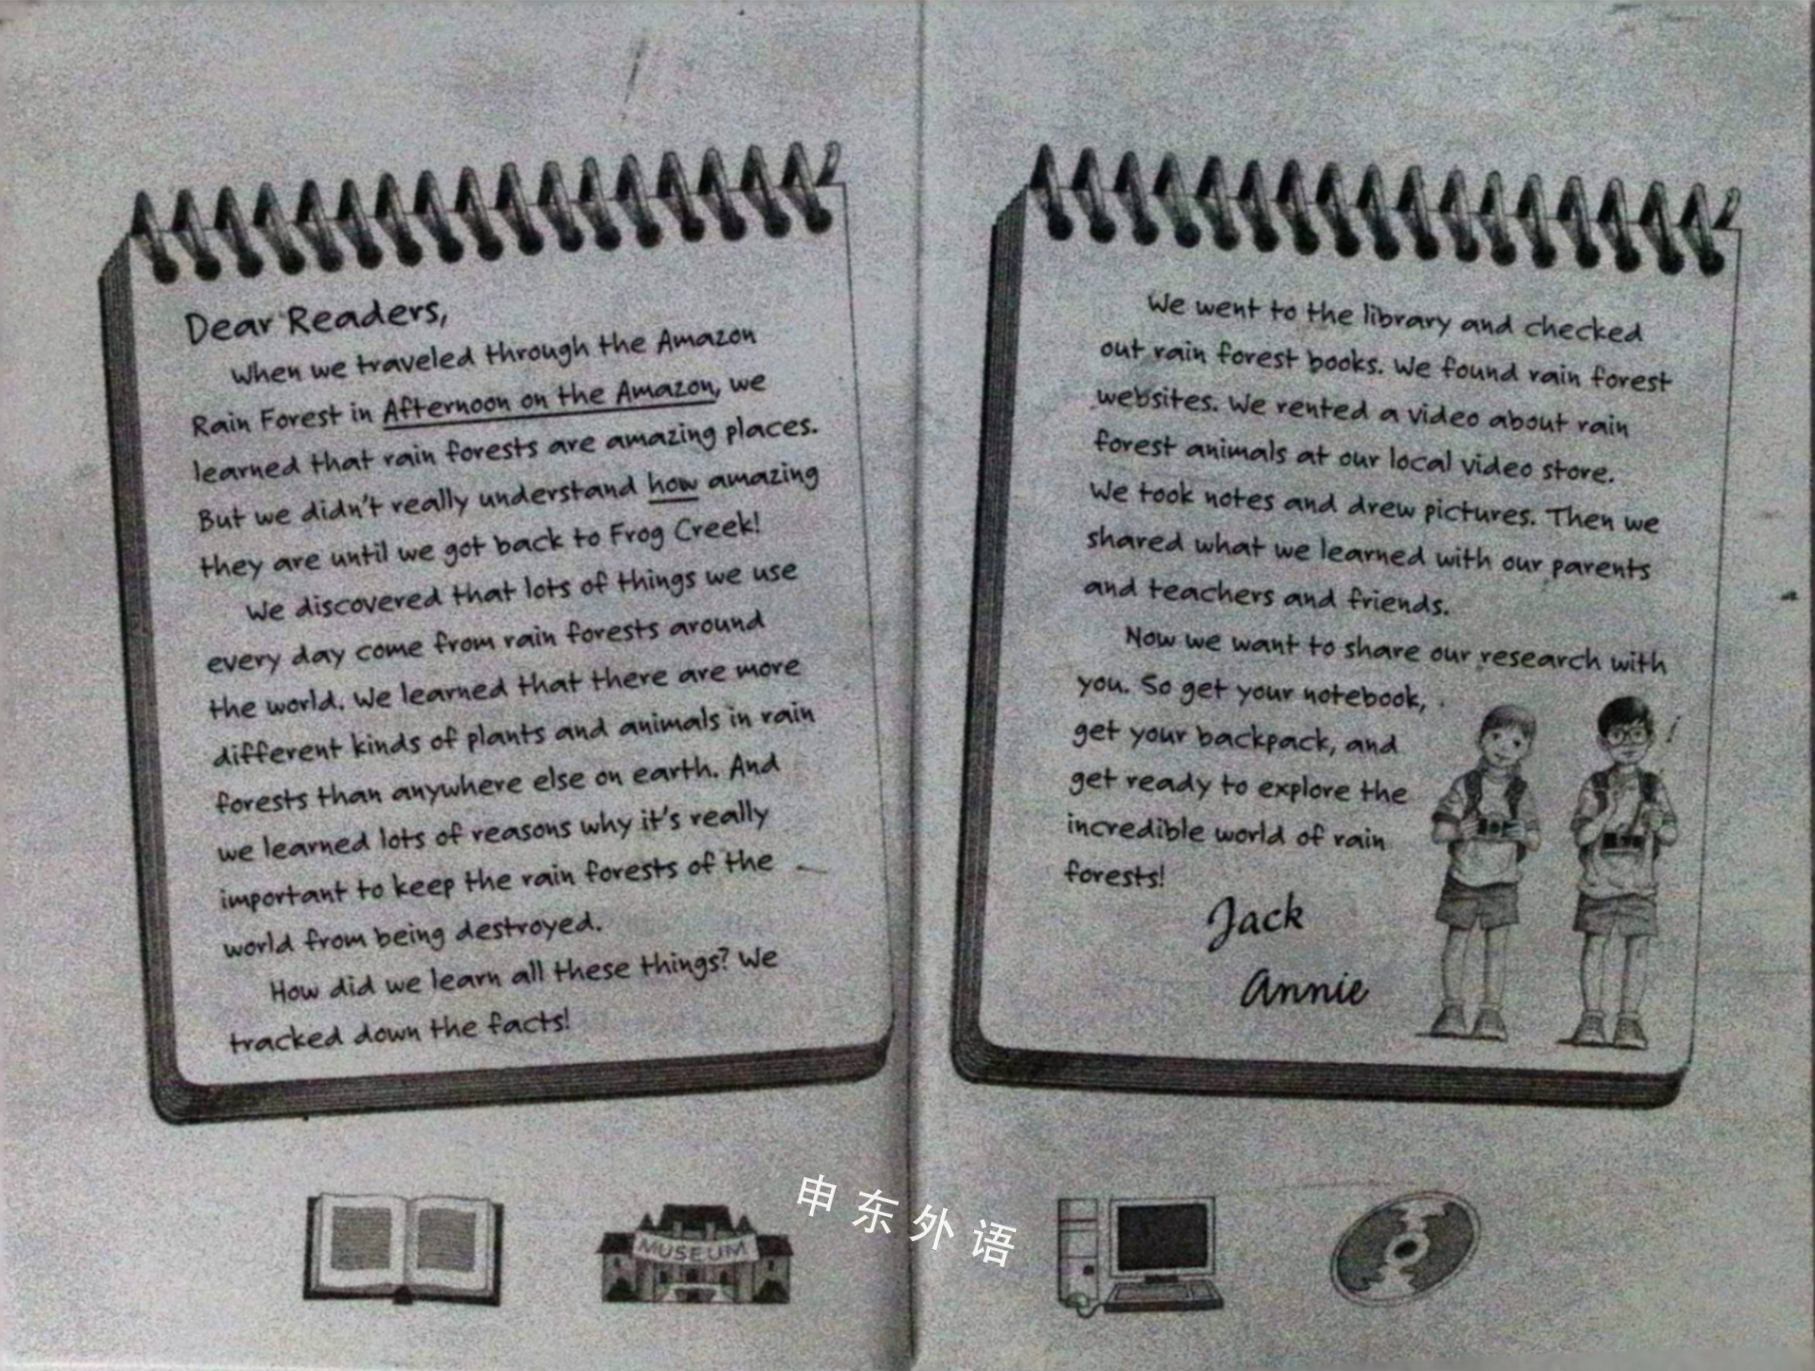 Dear Readers,
When we traveled through the Amazon
Rain Forest in Afternoon on the Amazon, we
learned that rain forests are amazing places.
But we didn't really understand how amazing
they are until we got back to Frog Creek!
We discovered that lots of things we use
every day come from rain forests around
the world. We learned that there are more
different kinds of plants and animals in rain
forests than anywhere else on earth. And
we learned lots of reasons why it's really
important to keep the rain forests of the
world from being destroyed.
How did we learn all these things? We
tracked down the facts!
We went to the library and checked
out rain forest books. We found rain forest
websites. We rented a video about rain
forest animals at our local video store.
We took notes and drew pictures. Then we
shared what we learned with our parents
and teachers and friends.
Now we want to share our research with
you. So get your notebook,
get your backpack, and
get ready to explore the
incredible world of rain
forests!
Jack
Annie
MUSEUM
申东外语